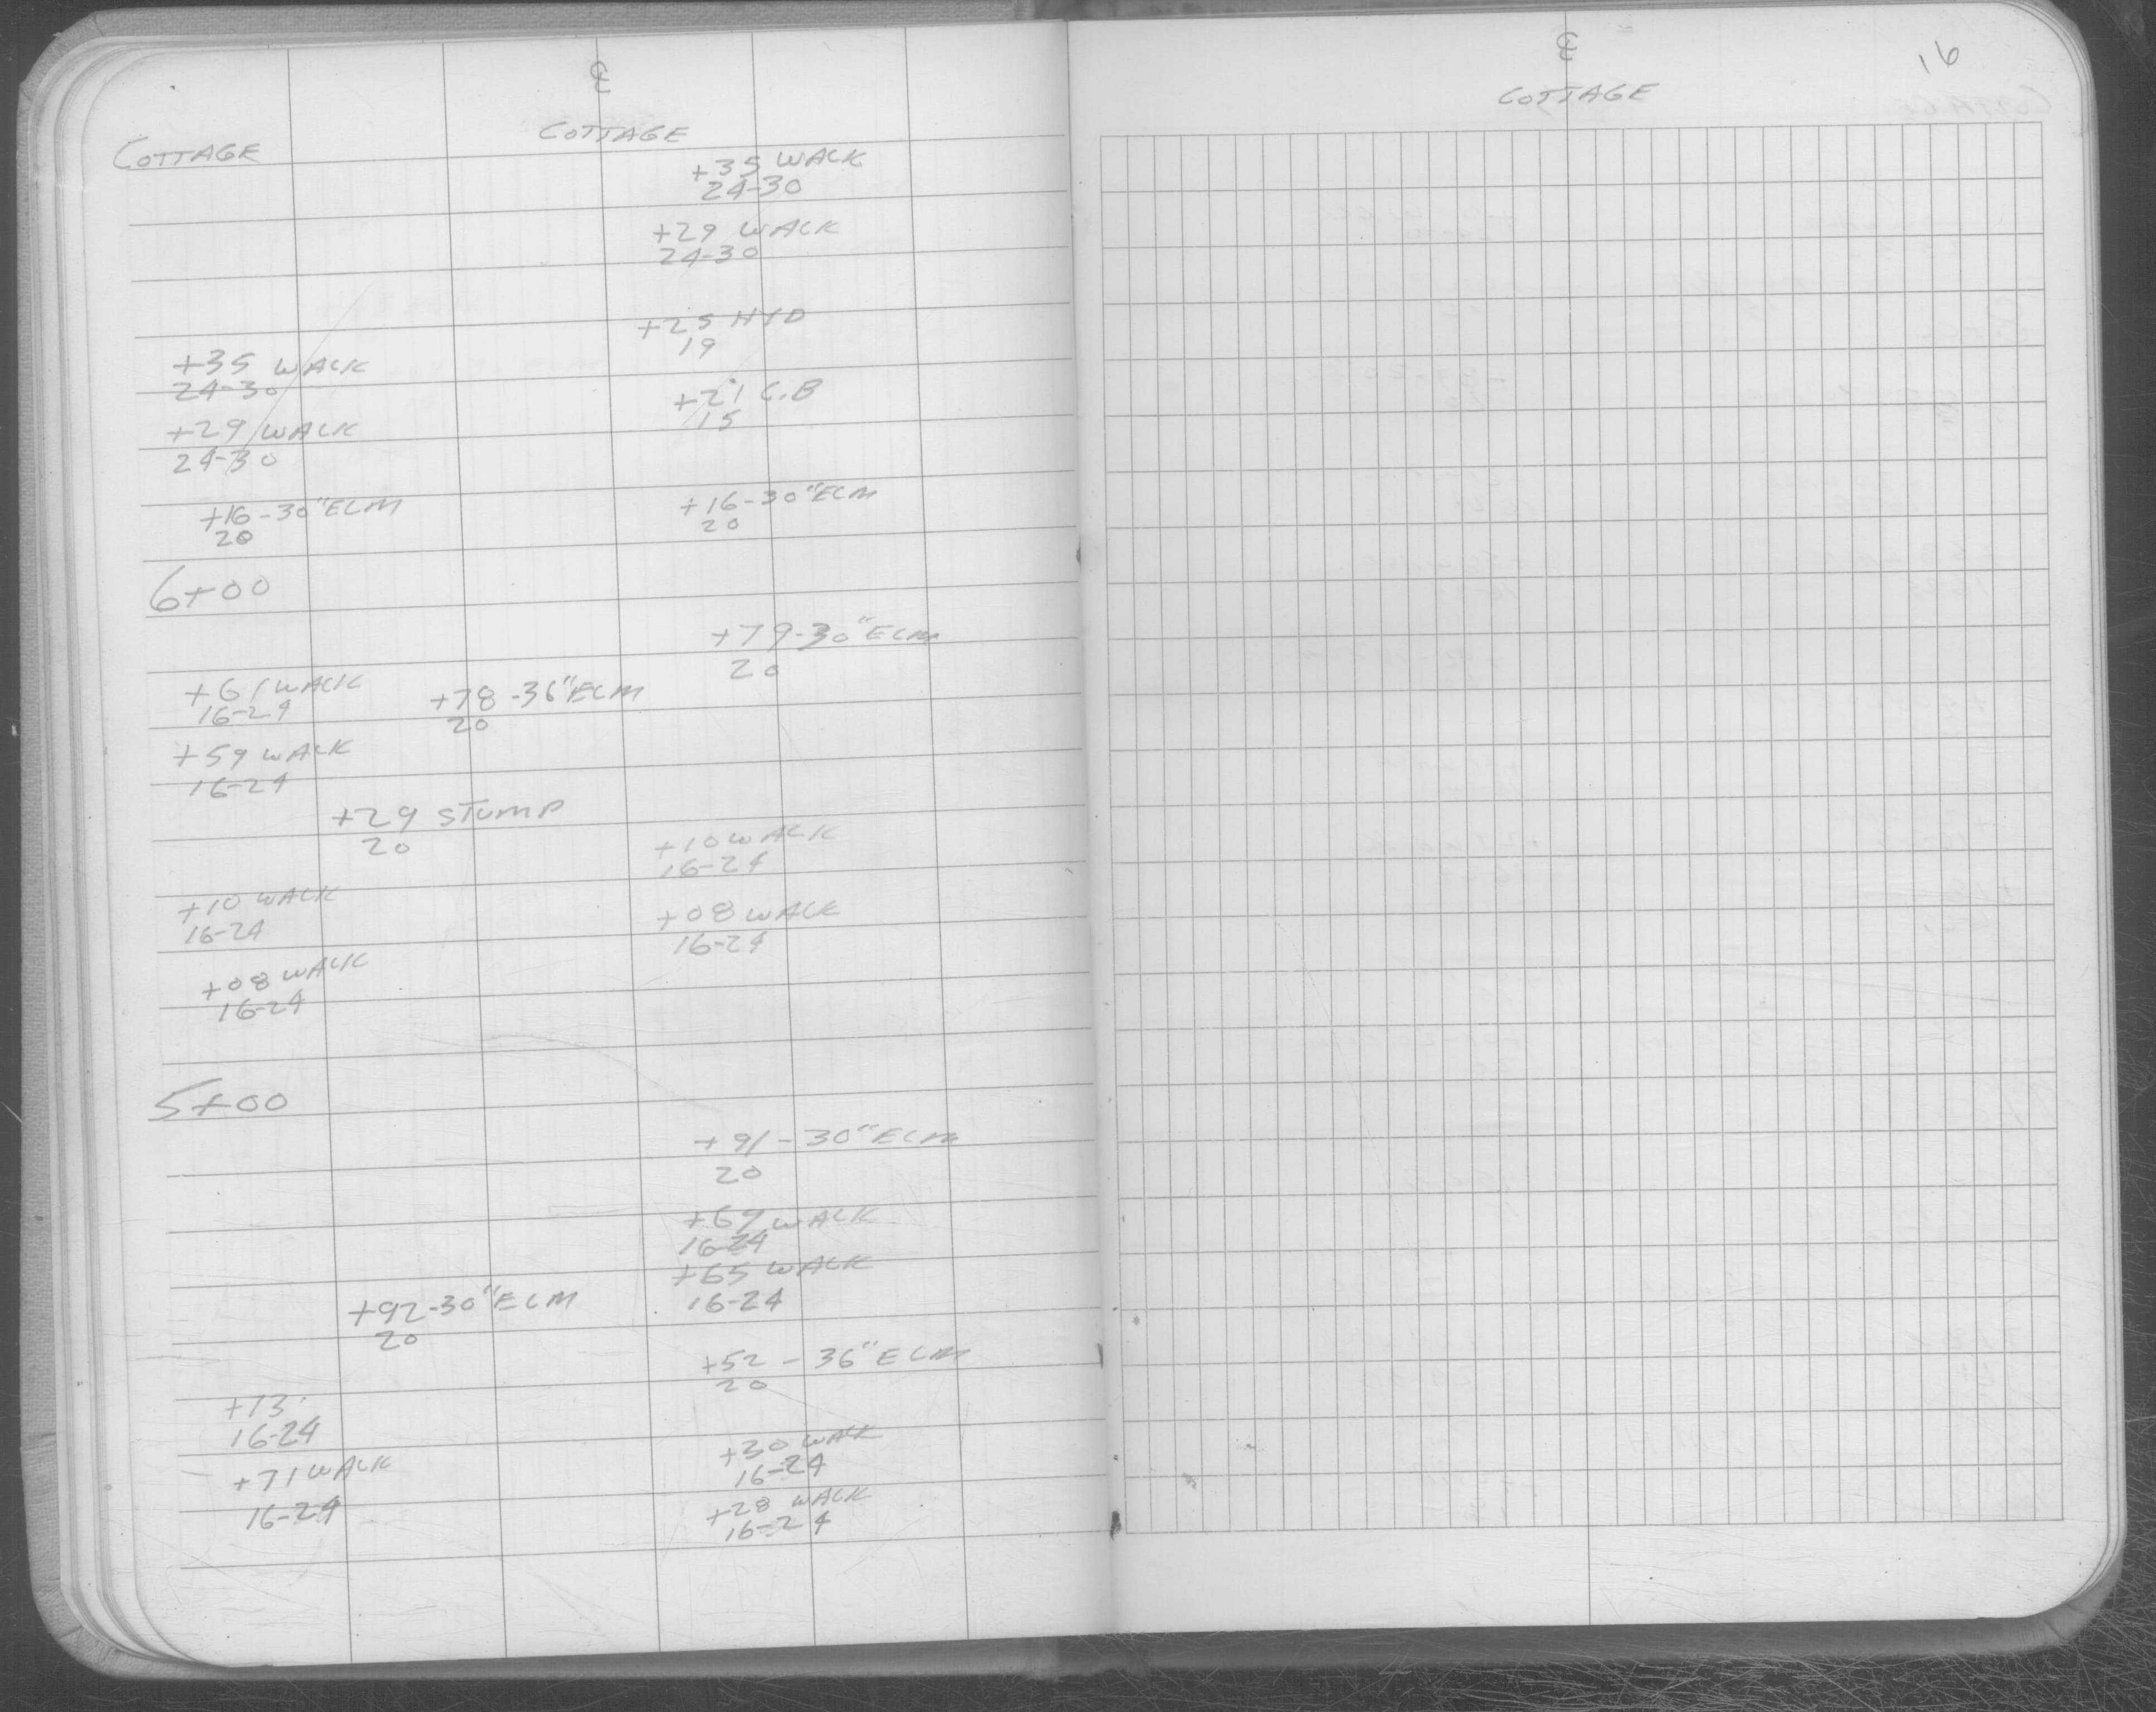 ℄
COTTAGE
COTTAGE
+35 WALK
24-30
+29 WALK
24-30
+25 HYD
19
+35 WALK
24-30
+21 C.B
15
+29 WALK
24-30
+16-30" ELM
20
+16-30" ELM
20
6+00
+79-30" ELM
20
+61 WALK
16-24
+78-36" ELM
20
+59 WALK
16-24
+29 STUMP
20
+10 WALK
16-24
+10 WALK
16-24
+08 WALK
16-24
+08 WALK
16-24
5+00
+91-30" ELM
20
+67 WALK
16-24
+65 WALK
16-24
+92-30" ELM
20
+52-36" ELM
20
+13
16-24
+30 WALK
16-24
+71 WALK
16-24
+28 WALK
16-24
℄
16
COTTAGE